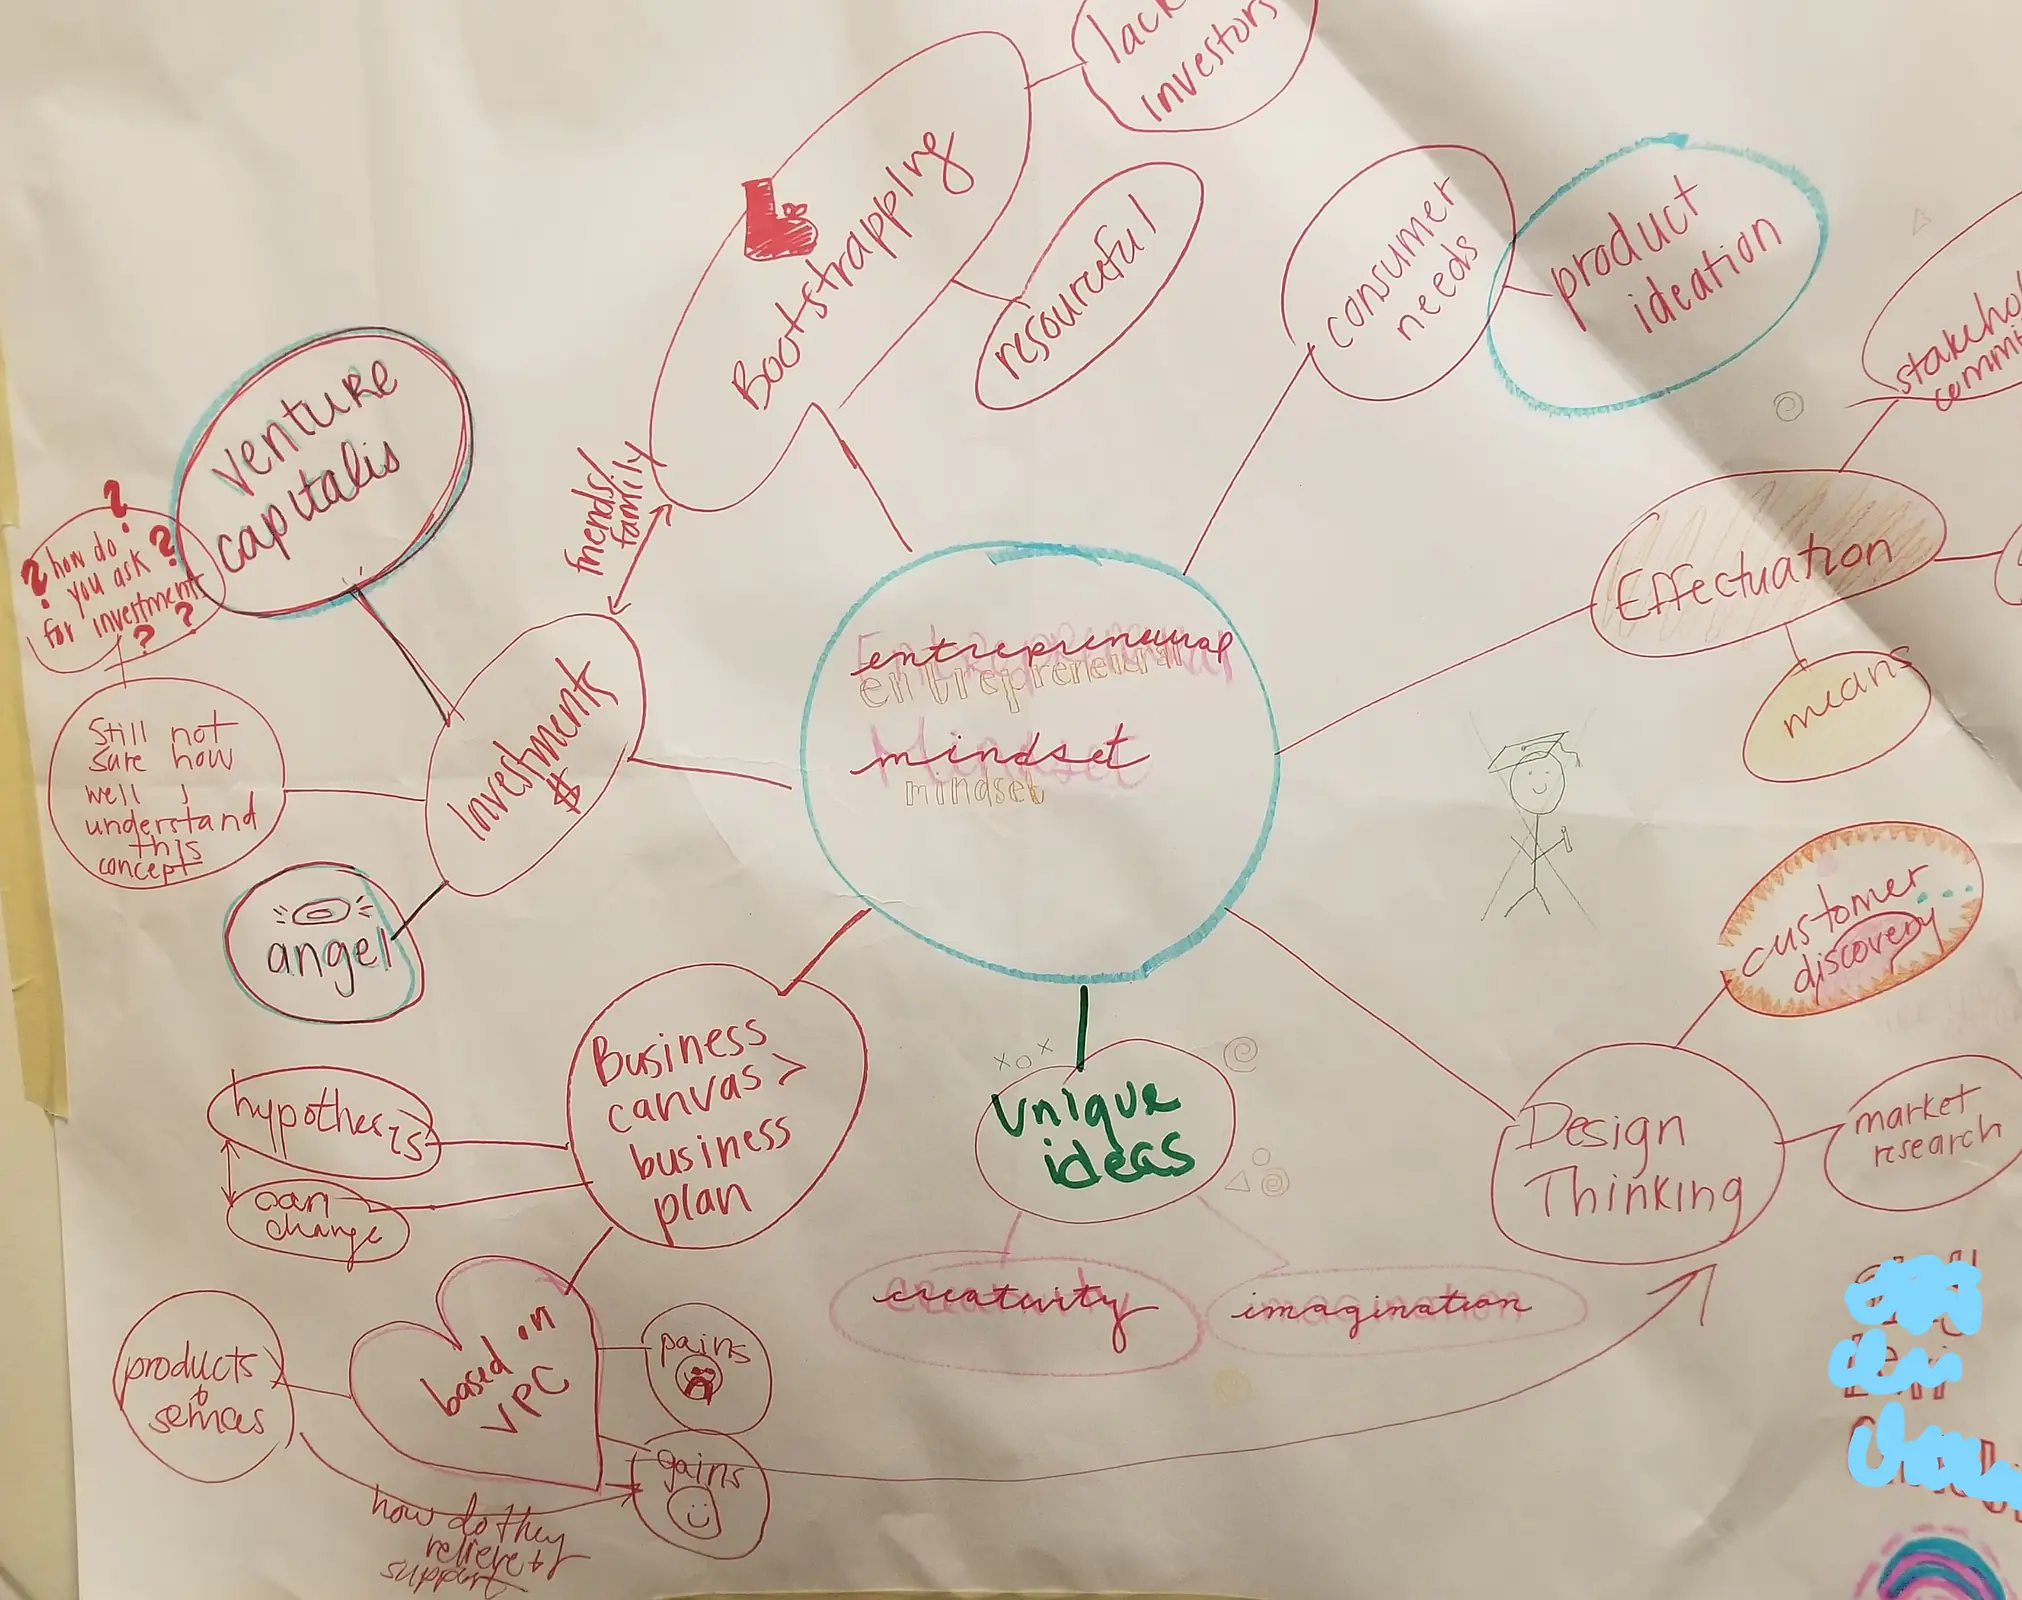 lack
investors
Bootstrapping
resourceful
consumer
needs
product
ideation
venture
capitalis
friends/
family
? how do ?
you ask ?
for investment
? ?
Still not
sure how
well I
understand
this
concept
Investments
$
angel
entrepreneurial
entrepreneurial
mindset
mindset
Effectuation
means
customer...
discovery
Design
Thinking
market
research
Unique
ideas
xox
creativity
imagination
Business
canvas >
business
plan
hypothesis
can
change
based on
VPC
products
+
services
pains
gains
how do they
relieve +
support